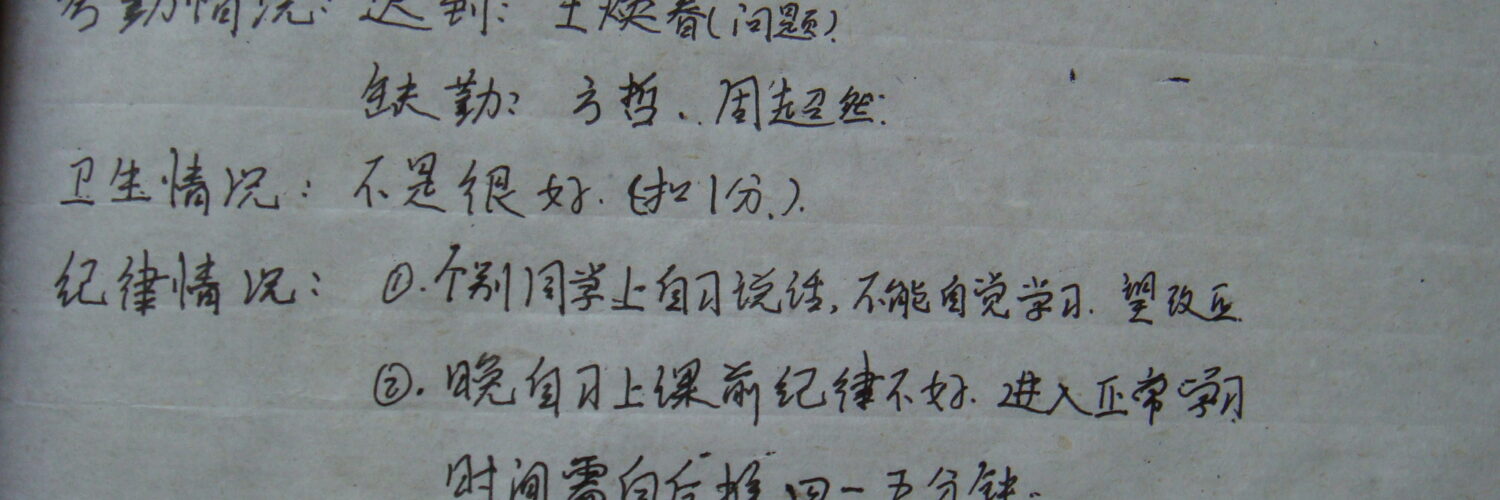 考勤情况: 迟到: 王焕春(问题)
缺勤: 方哲、周超然.
卫生情况: 不是很好.(扣1分.).
纪律情况: ①.个别同学上自习说话,不能自觉学习.望改正
②.晚自习上课前纪律不好.进入正常学习
时间需向后推四-五分钟.